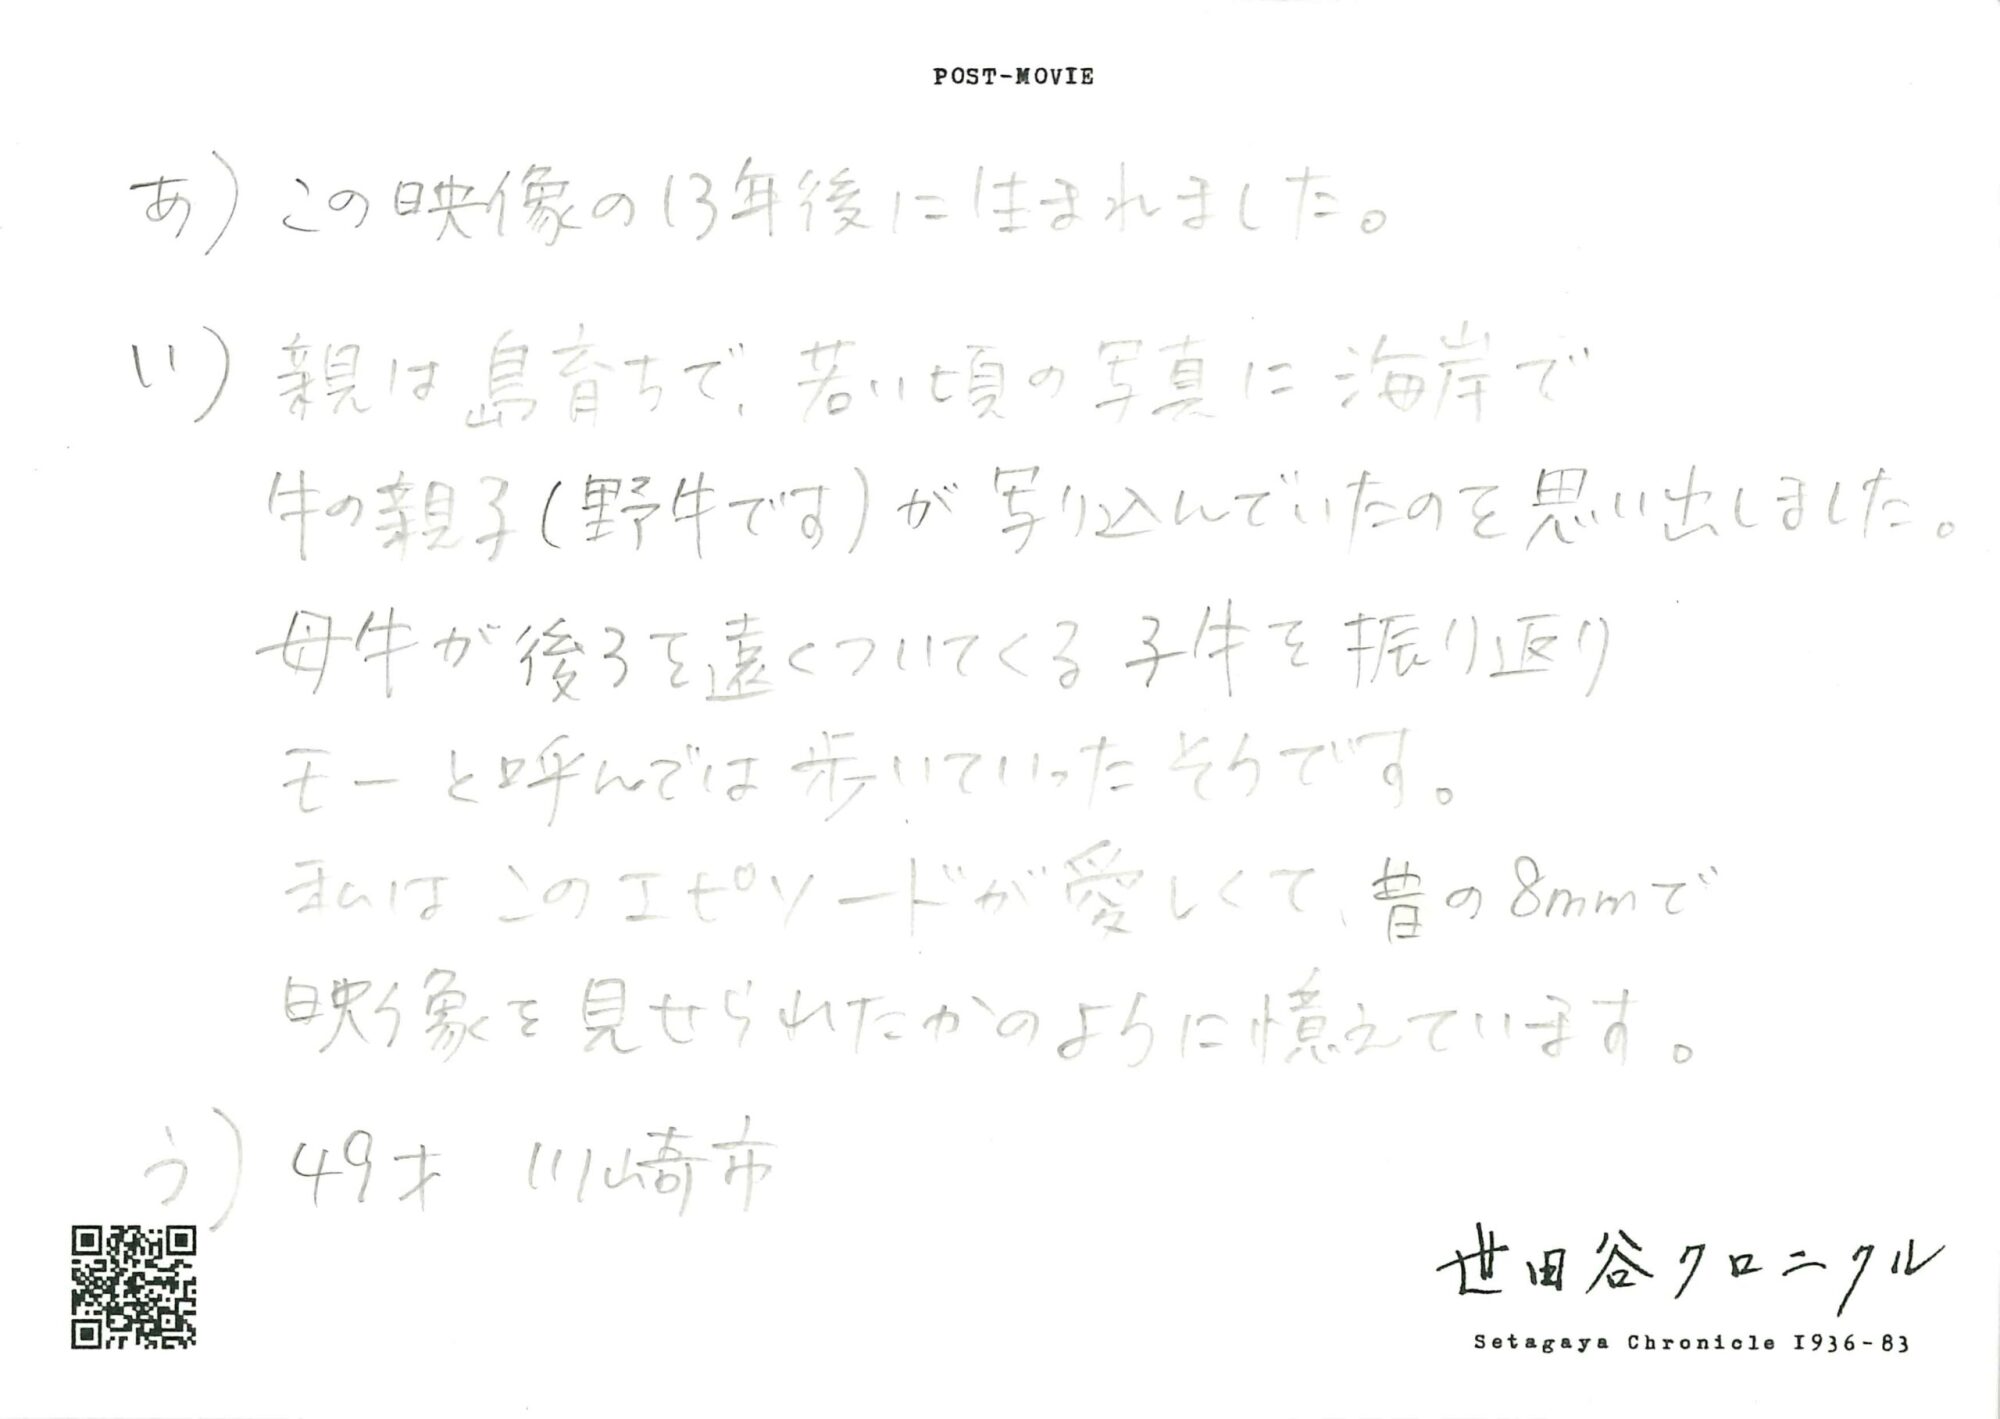 POST-MOVIE
あ) この映像の13年後に生まれました。
い) 親は島育ちで、若い頃の写真に海岸で
牛の親子(野牛です)が写り込んでいたのを思い出しました。
母牛が後ろを遠くついてくる子牛を振り返り
モーと呼んでは歩いていったそうです。
私はこのエピソードが愛しくて、昔の8mmで
映像を見せられたかのように憶えています。
う) 49才 川崎市
世田谷クロニクル
Setagaya Chronicle 1936-83